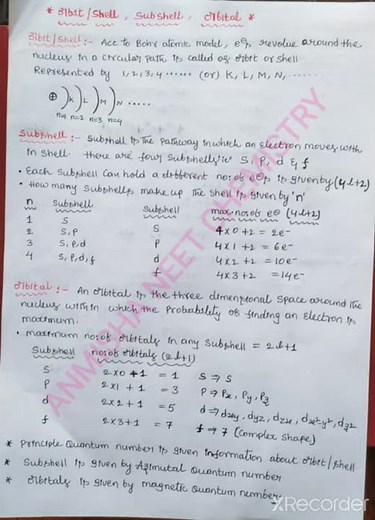 * Orbit/Shell, Subshell, Orbital *
Orbit/Shell :- Acc to Bohr atomic model, e⊖s revolve around the
nucleus in a circular path is called as orbit or shell
Represented by 1, 2, 3, 4 ...... (or) K, L, M, N, ......
⊕ ) K ) L ) M ) N .....
n=1 n=2 n=3 n=4
Subshell :- Subshell is the pathway in which an electron moves with
in shell there are four subshells is S, P, d & f
• Each subshell can hold a different no:of e⊖s is given by (4l+2)
• How many subshells make up the shell is given by 'n'
n Subshell Subshell max: no:of e⊖ (4l+2)
1 S S 4x0+2 = 2e-
2 S, P P 4x1+2 = 6e-
3 S, P, d d 4x2+2 = 10e-
4 S, P, d, f f 4x3+2 = 14e-
Orbital :- An Orbital is the three dimentional Space around the
nucleus within which the Probability of finding an Electron is
maximum.
• maximum no:of Orbitals in any Subshell = 2l+1
Subshell no:of orbitals (2l+1)
S 2x0+1 = 1 S ⇒ S
P 2x1+1 = 3 P ⇒ Px, Py, Pz
d 2x2+1 = 5 d ⇒ dxy, dyz, dzx, dx²-y², dz²
f 2x3+1 = 7 f ⇒ 7 (complex shape)
* Principle Quantum number is given information about Orbit/shell
* Subshell is given by Azimutal Quantum number
* Orbitals is given by magnetic Quantum number
ANIMISHA NEET CHEMISTRY
XRecorder